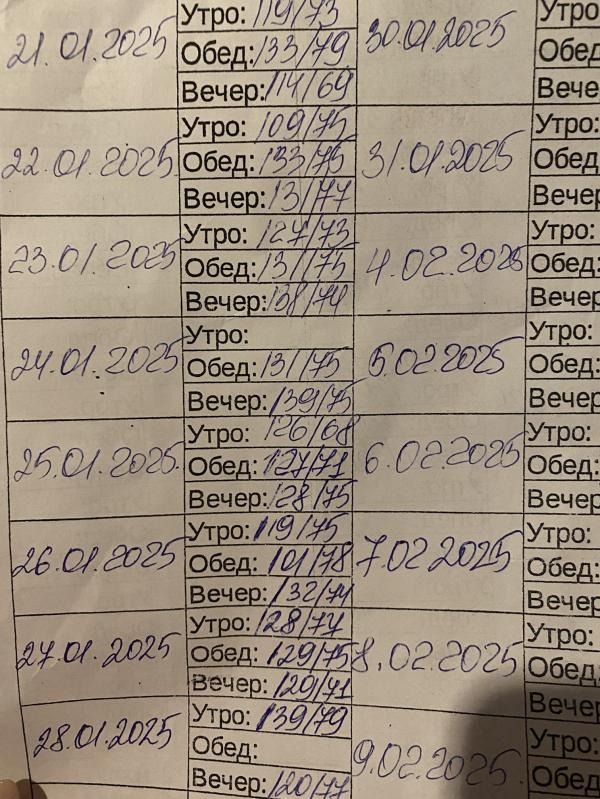 21.01.2025
Утро: 119/73
Обед: 133/79
Вечер: 114/69
30.01.2025
Утро
Обед
Вече
22.01.2025
Утро: 109/75
Обед: 133/75
Вечер: 131/77
31.01.2025
Утро:
Обед:
Вечер
23.01.2025
Утро: 127/73
Обед: 131/75
Вечер: 138/74
4.02.2025
Утро:
Обед:
Вечер
24.01.2025
Утро:
Обед: 131/75
Вечер: 139/75
5.02.2025
Утро:
Обед:
Вечер
25.01.2025
Утро: 126/68
Обед: 127/71
Вечер: 128/75
6.02.2025
Утро:
Обед:
Вечер
26.01.2025
Утро: 119/75
Обед: 101/78
Вечер: 132/74
7.02.2025
Утро:
Обед:
Вечер
27.01.2025
Утро: 128/77
Обед: 129/75
Вечер: 129/71
8.02.2025
Утро:
Обед:
Вечер
28.01.2025
Утро: 139/79
Обед:
Вечер: 120/77
9.02.2025
Утро:
Обед